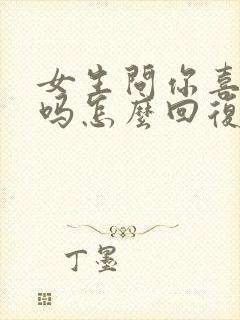 女生問你喜
吗怎麼回復
丁墨